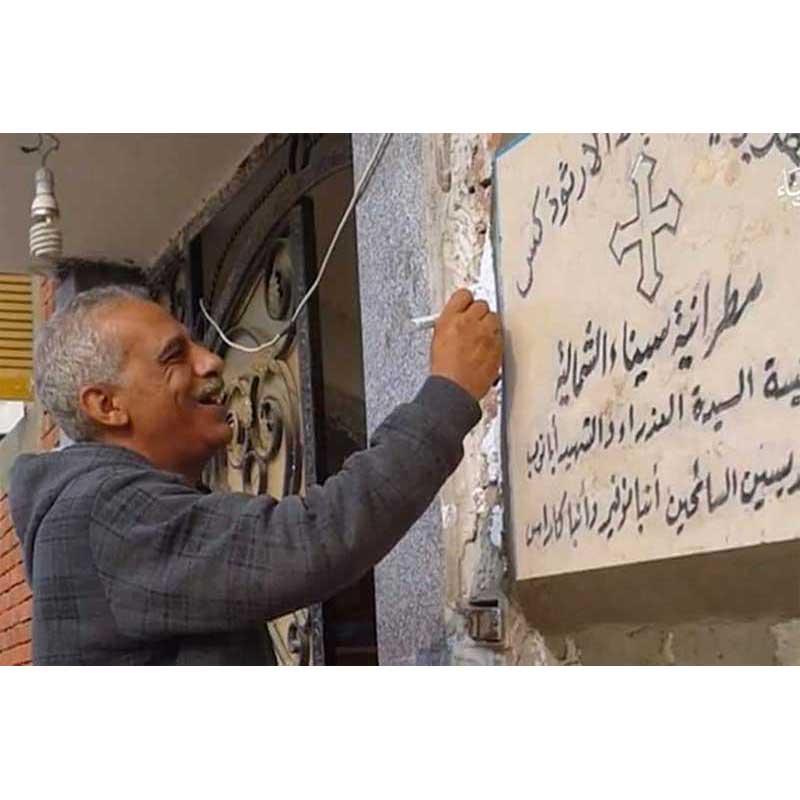 الارثوذكس
مطرانية سيناء الشمالية
السيدة العذراء والشهيد أبانوب
السائحين أنبا نوفير وأنبا كاراس